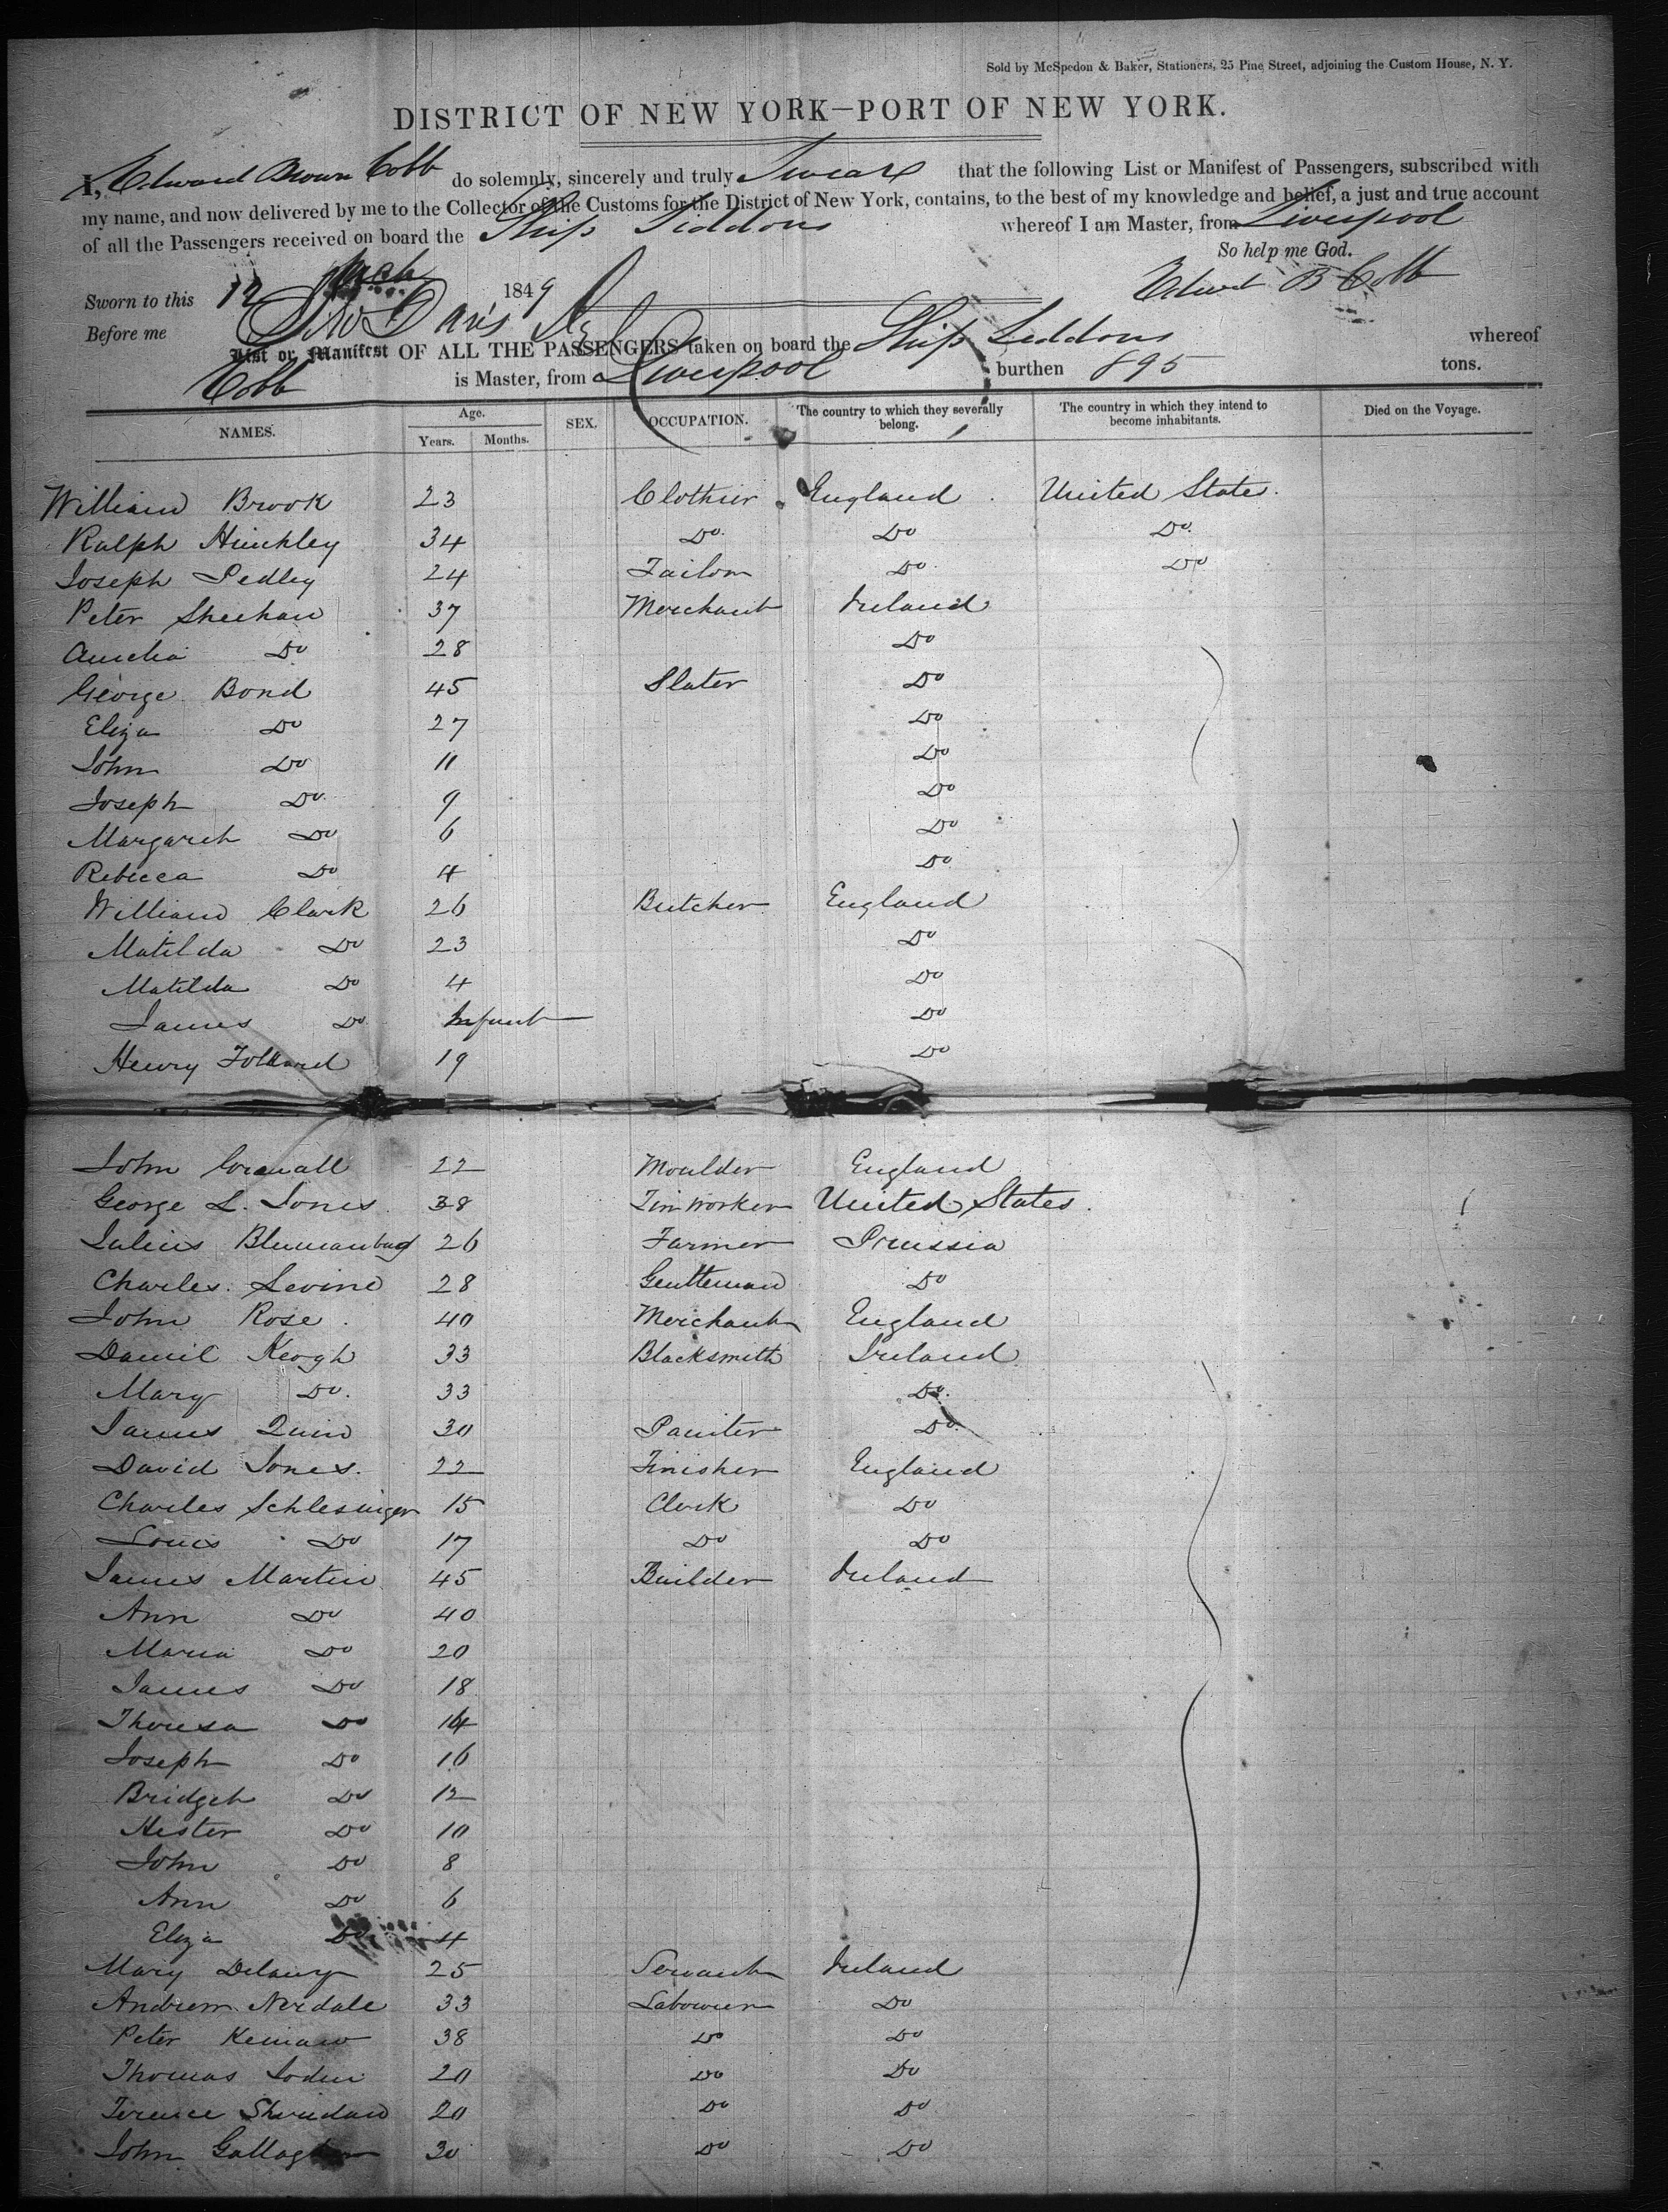 Sold by McSpedon & Baker, Stationers, 25 Pine Street, adjoining the Custom House, N. Y.
DISTRICT OF NEW YORK—PORT OF NEW YORK.
I, Edward Brown Cobb do solemnly, sincerely and truly Swear that the following List or Manifest of Passengers, subscribed with
my name, and now delivered by me to the Collector of the Customs for the District of New York, contains, to the best of my knowledge and belief, a just and true account
of all the Passengers received on board the Ship Siddons whereof I am Master, from Liverpool
So help me God.
Sworn to this 12 Mch 1849 Edward B Cobb
Before me Davis
List or Manifest OF ALL THE PASSENGERS taken on board the Ship Siddons whereof
Cobb is Master, from Liverpool burthen 895 tons.
NAMES. Age. Years. Months. SEX. OCCUPATION. The country to which they severally belong. The country in which they intend to become inhabitants. Died on the Voyage.
William Brook 23 Clothier England United States.
Ralph Hinchley 34 Do. Do Do.
Joseph Pedley 24 Tailor Do. Do
Peter Sheehan 37 Merchant Ireland
Amelia Do 28 Do
George Bond 45 Slater Do
Eliza Do 27 Do
John Do 11 Do
Joseph Do. 9 Do
Margaret Do 6 Do
Rebecca Do 4 Do
William Clark 26 Butcher England
Matilda Do 23 Do
Matilda Do 4 Do
James Do Infant Do
Henry 19 Do
John Cornwall 22 Moulder England
George L. Jones 38 Tin worker United States.
Julius 26 Farmer Prussia
Charles Levine 28 Gentleman Do
John Rose 40 Merchant England
Daniel Keogh 33 Blacksmith Ireland
Mary Do. 33 Do.
James Quin 30 Painter Do.
David Jones. 22 Finisher England
Charles Schlesinger 15 Clerk Do
Louis Do 17 Do Do
James Martin 45 Builder Ireland
Ann Do 40
Maria Do 20
James Do 18
Theresa Do 14
Joseph Do 16
Bridget Do 12
Hester Do 10
John Do 8
Ann Do 6
Eliza Do 4
Mary Delany 25 Servant Ireland
Andrew Nerdale 33 Labourer Do
Peter 38 Do Do
Thomas Soden 20 Do Do
Terence Sheridan 20 Do Do
John Gallagher 30 Do Do